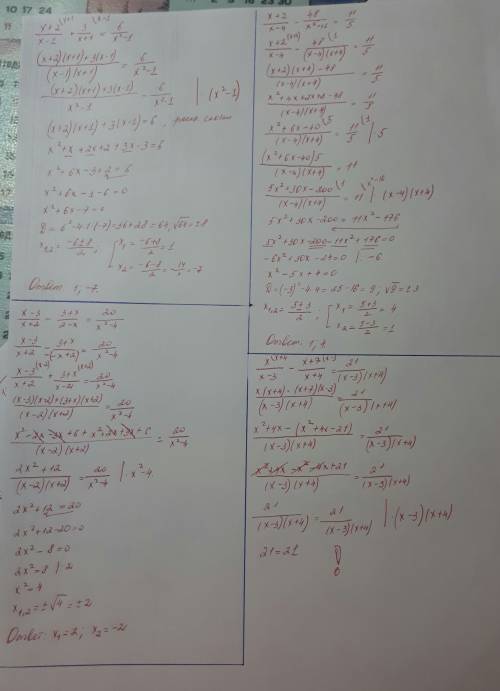 (x+2)\(x+1) / (x-1) + 3\(x-1) / (x+1) = 6/(x²-1)
((x+2)(x+1)+3(x-1)) / ((x-1)(x+1)) = 6/(x²-1)
((x+2)(x+1)+3(x-1)) / (x²-1) = 6/(x²-1) | (x²-1)
(x+2)(x+1)+3(x-1)=6,
x²+x+2x+2+3x-3=6
x²+6x-3+2=6
x²+6x-1-6=0
x²+6x-7=0
D=6²-4·1·(-7)=36+28=64, √64=±8
x1,2 = (-6±8)/2, [ x1 = (-6+8)/2 = 1
x2 = (-6-8)/2 = -14/2 = -7
Ответ: 1, -7.
(x+2)/(x-4) - 48/(x²-16) = 11/5
(x+2)\(x+4) / (x-4) - 48\1 / ((x-4)(x+4)) = 11/5
((x+2)(x+4)-48) / ((x-4)(x+4)) = 11/5
(x²+4x+2x+8-48) / ((x-4)(x+4)) = 11/5
(x²+6x-40)\5 / ((x-4)(x+4)) = 11\1 / 5 | 5
((x²+6x-40)5) / ((x-4)(x+4)) = 11
(5x²+30x-200)\1 / ((x-4)(x+4)) = 11\x²-16 | (x-4)(x+4)
5x²+30x-200=11x²-176
5x²+30x-200-11x²+176=0
-6x²+30x-24=0 | -6
x²-5x+4=0
D=(-5)²-4·4=25-16=9, √9=±3
x1,2 = (5±3)/2; [ x1 = (5+3)/2 = 4
x2 = (5-3)/2 = 1
Ответ: 1, 4.
(x-3)/(x+2) - (3+x)/(2-x) = 20/(x²-4)
(x-3)/(x+2) - (3+x)/(-(-x+2)) = 20/(x²-4)
(x-3)\(x-2) / (x+2) + (3+x)\(x+2) / (x-2) = 20/(x²-4)
((x-3)(x-2)+(3+x)(x+2)) / ((x-2)(x+2)) = 20/(x²-4)
(x²-2x-3x+6+x²+2x+3x+6) / ((x-2)(x+2)) = 20/(x²-4)
(2x²+12) / ((x-2)(x+2)) = 20/(x²-4) | x²-4
2x²+12=20
2x²+12-20=0
2x²-8=0
2x²=8 | 2
x²=4
x1,2=±√4=±2
Ответ: x1=2; x2=-2
x\(x+4) / (x-3) - (x+7)\(x-3) / (x+4) = 21/((x-3)(x+4))
(x(x+4)-(x+7)(x-3)) / ((x-3)(x+4)) = 21/((x-3)(x+4))
(x²+4x-(x²+4x-21)) / ((x-3)(x+4)) = 21/((x-3)(x+4))
(x²+4x-x²-4x+21) / ((x-3)(x+4)) = 21/((x-3)(x+4))
21/((x-3)(x+4)) = 21/((x-3)(x+4)) | (x-3)(x+4)
21=21 !